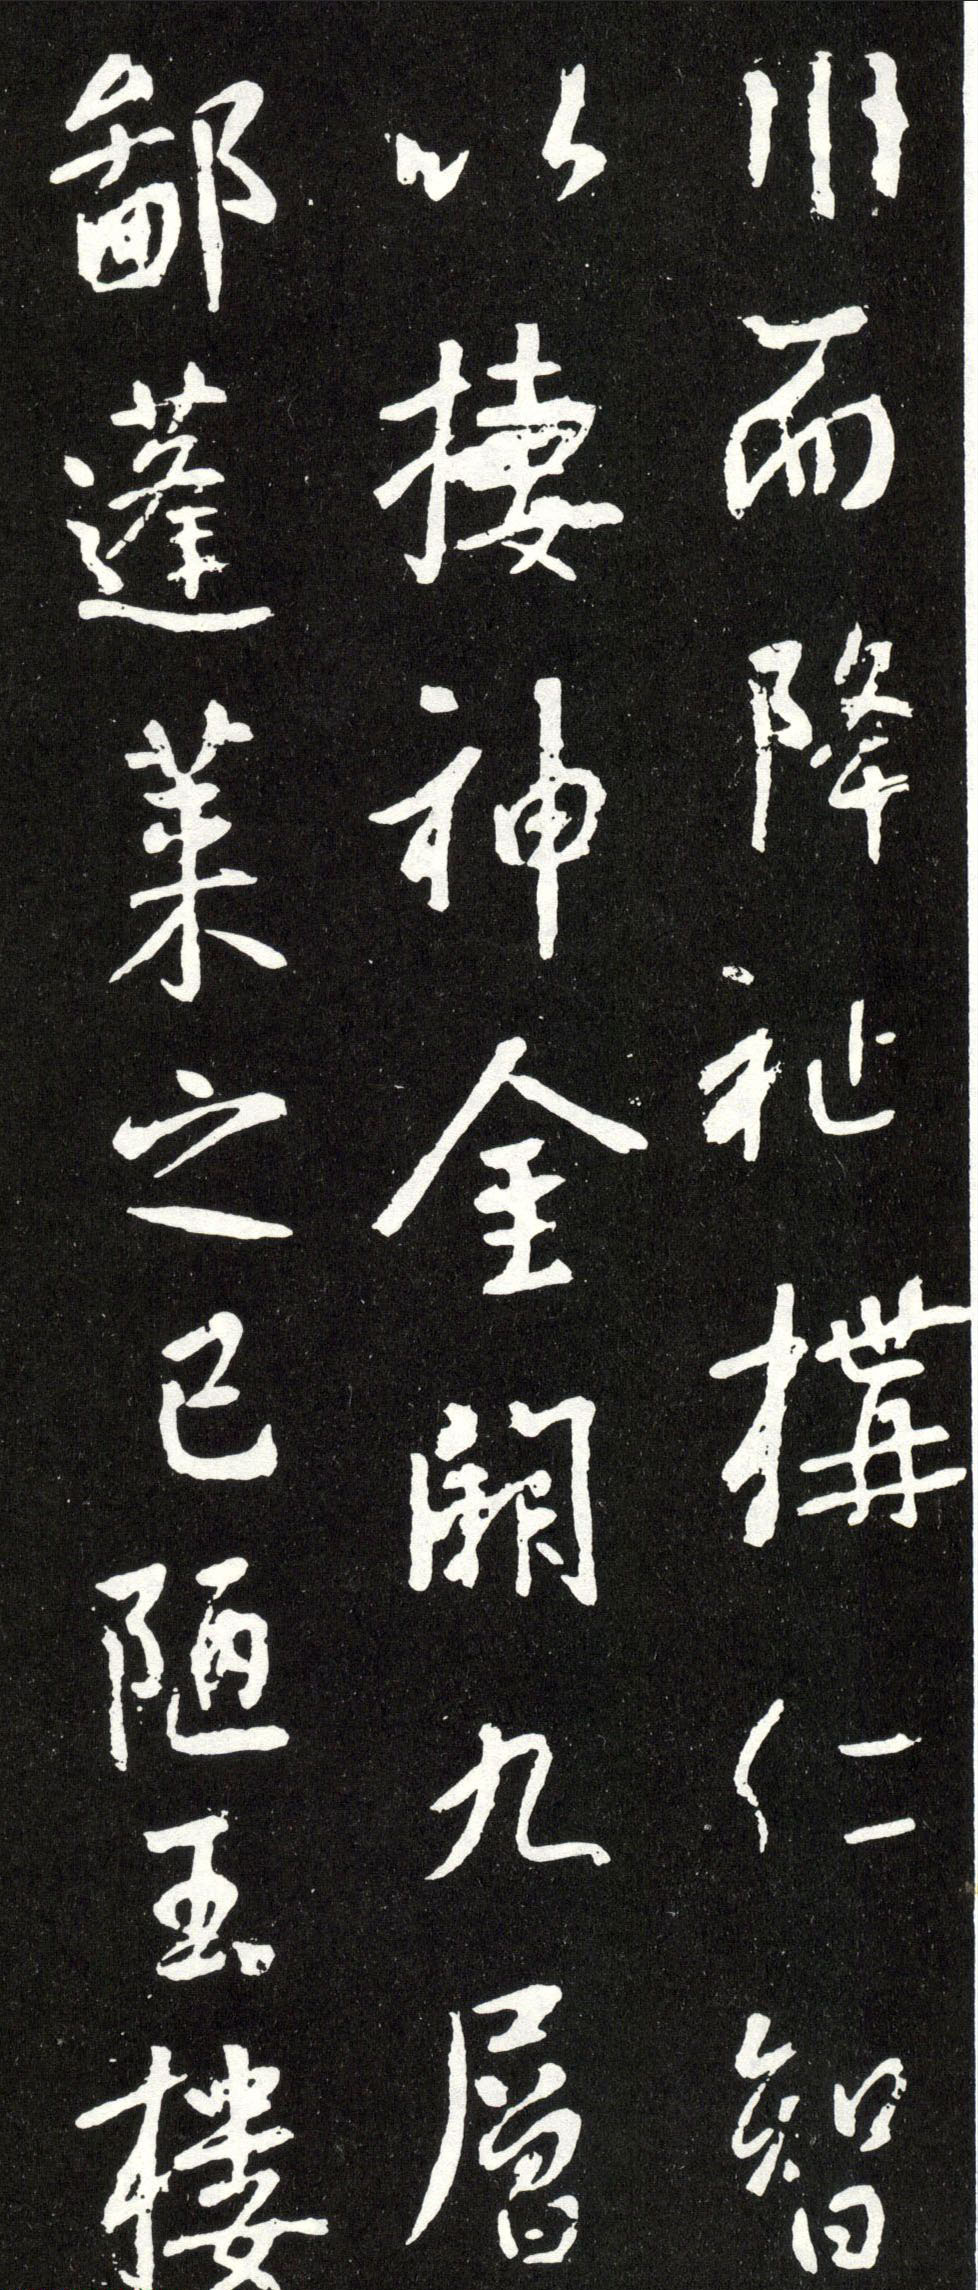 川而降祉構仁智
以棲神金闕九層
鄙蓬萊之已陋玉樓